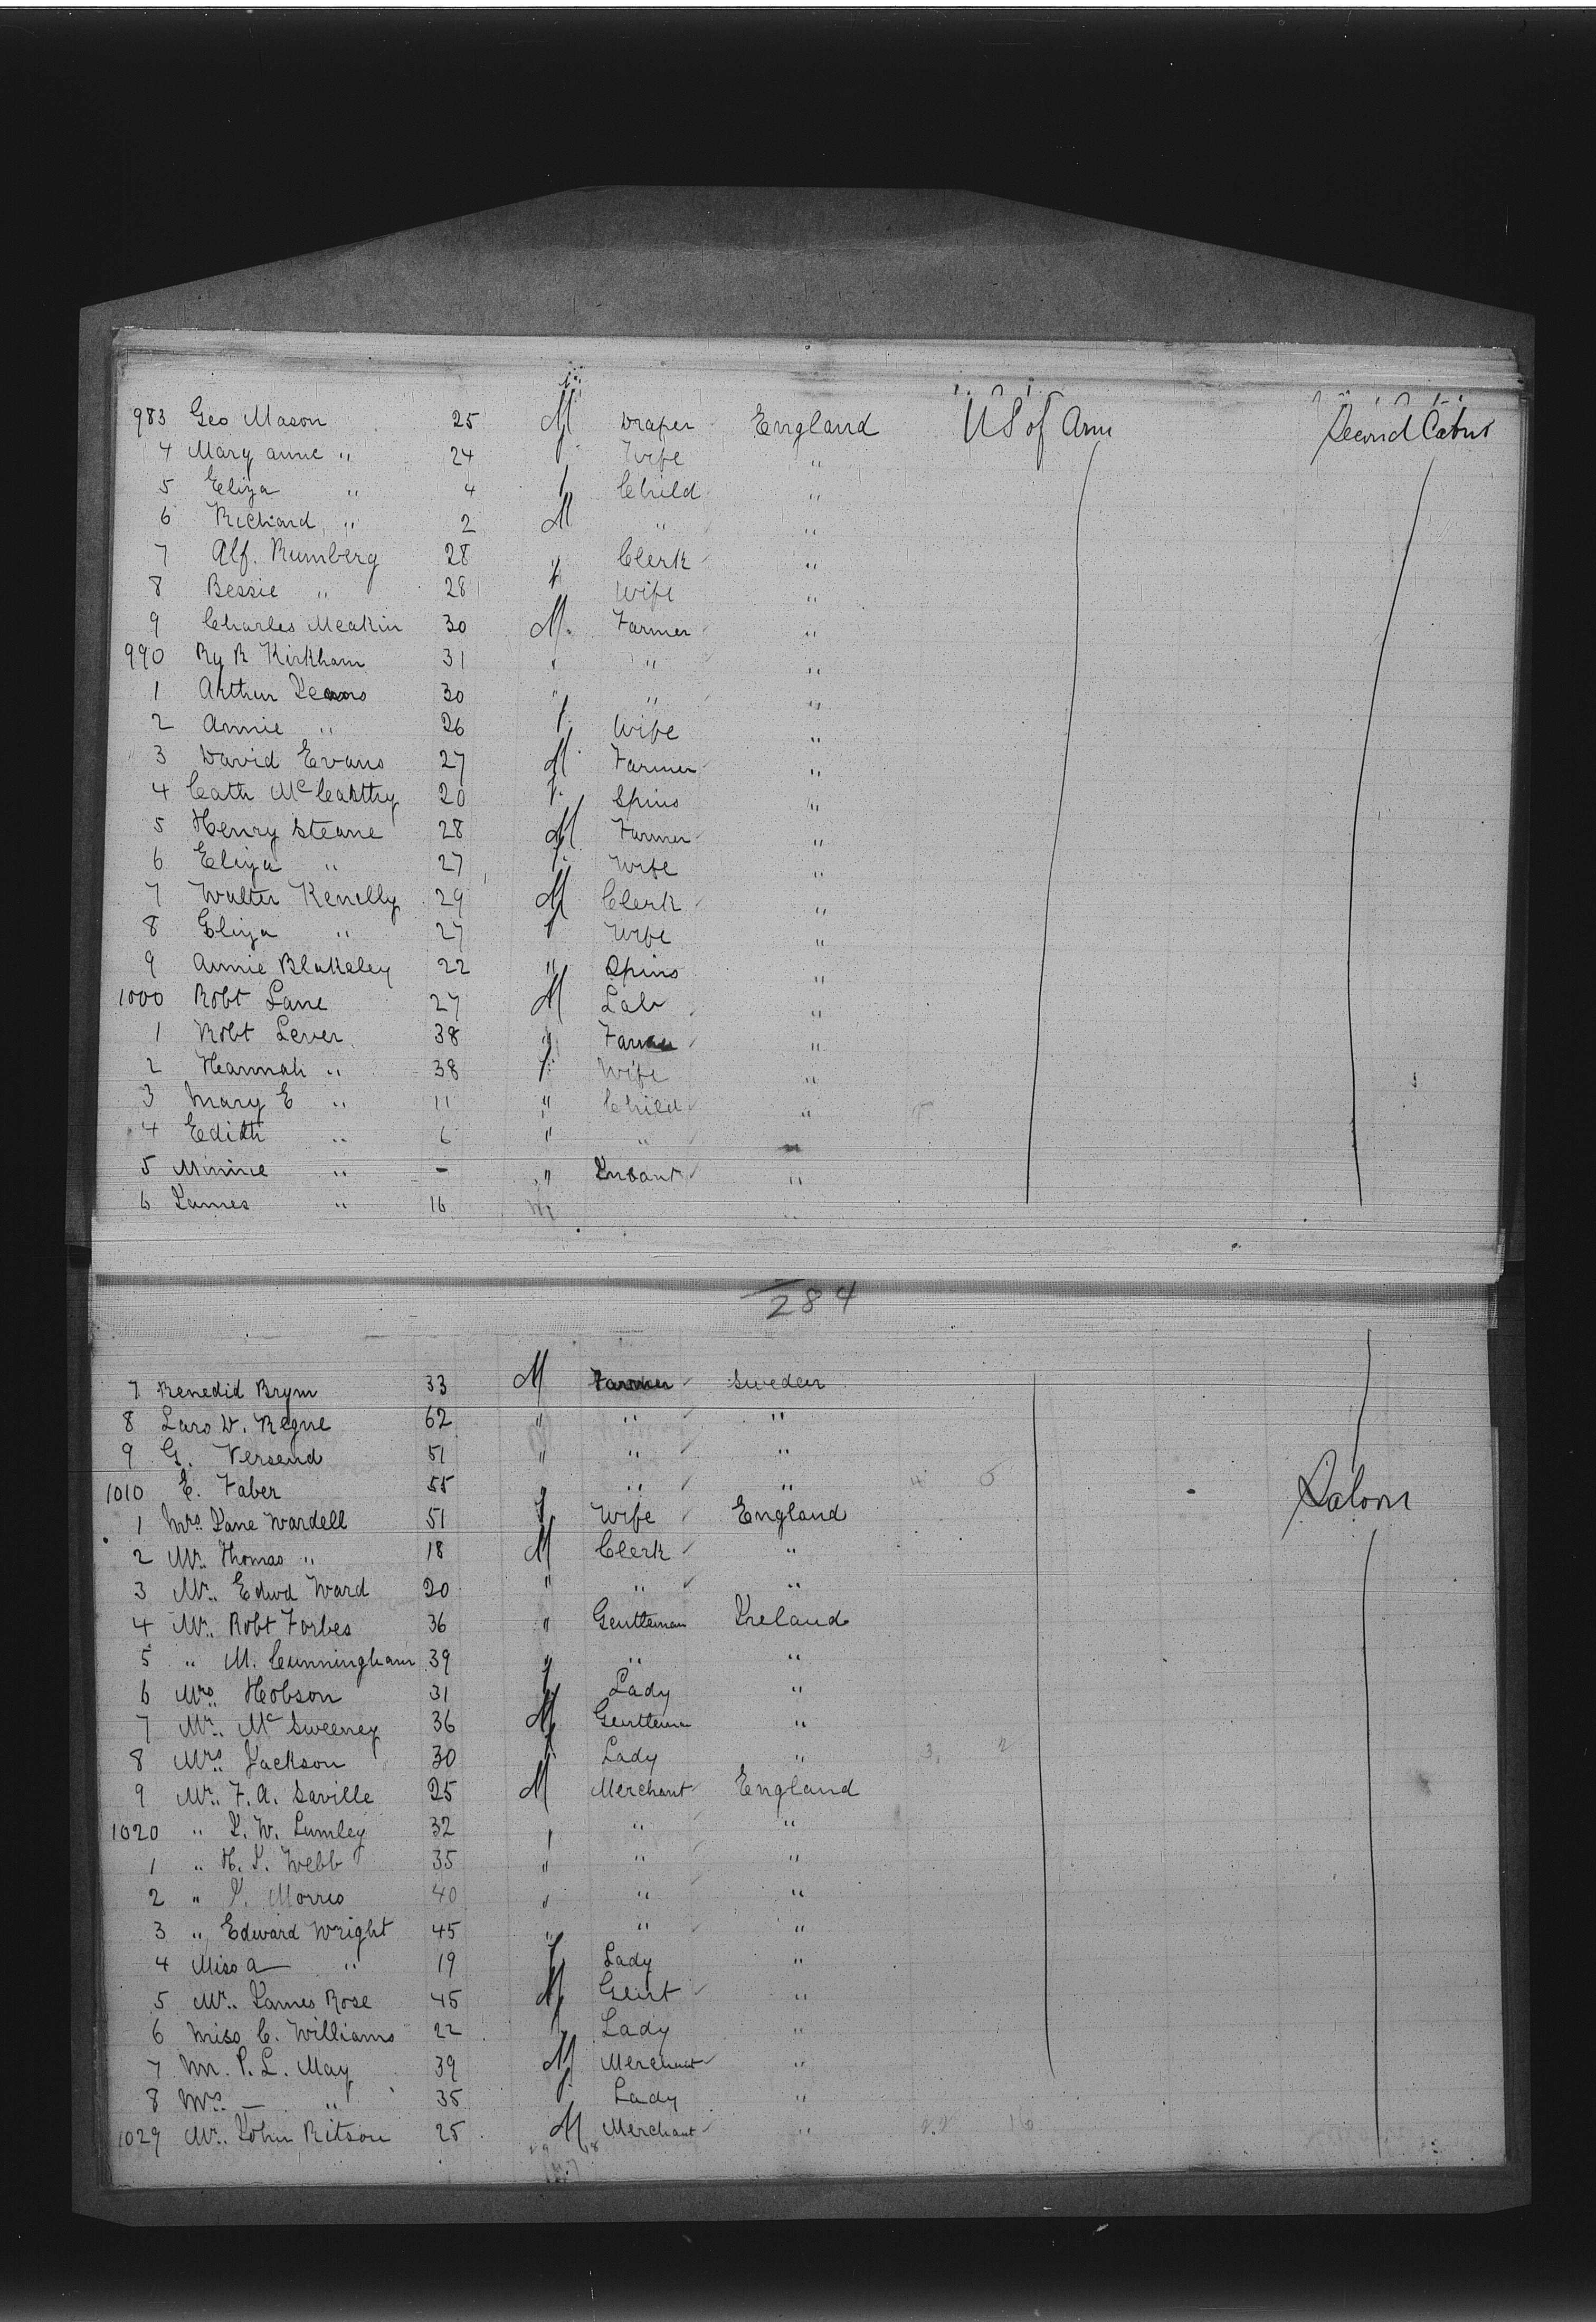 983 Geo Mason 25 M Draper England US of Am Second Cabin
4 Mary anne " 24 f Wife "
5 Eliza " 4 f Child "
6 Richard " 2 M " "
7 Alf. Rumberg 28 " Clerk "
8 Bessie " 28 f Wife "
9 Charles Meakin 30 M. Farmer "
990 Ry R Kirkham 31 " " "
1 Arthur 30 " " "
2 Annie " 26 f. Wife "
3 David Evans 27 M Farmer "
4 Cath McCarthy 20 f. Spins "
5 Henry Steane 28 M Farmer "
6 Eliza " 27 f. Wife "
7 Walter Kenelly 29 M Clerk "
8 Eliza " 27 f Wife "
9 Annie Blakeley 22 " Spins "
1000 Robt Lane 27 M Lab "
1 Robt Lever 38 " Farmer "
2 Hannah " 38 f Wife "
3 Mary E " 11 " Child "
4 Edith " 6 " " "
5 Minnie " - " Infant "
6 James " 16 M "
284
7 Benedid Brym 33 M Farmer Sweden
8 Lars W. Regne 62 " " "
9 G. Versend 51 " " "
1010 E. Faber 55 " " " 4 5 Saloon
1 Mrs. Jane Wardell 51 f Wife England
2 Mr. Thomas " 18 M Clerk "
3 Mr. Edwd Ward 20 " " "
4 Mr. Robt Forbes 36 " Gentleman Ireland
5 " M. Cunningham 39 " " "
6 Mrs. Hobson 31 f Lady "
7 Mr. McSweeney 36 M Gentleman "
8 Mrs. Jackson 30 f Lady " 3, 2
9 Mr. F. A. Saville 25 M Merchant England
1020 " J. W. Lumley 32 " " "
1 " H. J. Webb 35 " " "
2 " J. Morris 40 " " "
3 " Edward Wright 45 " " "
4 Miss A " 19 f Lady "
5 Mr. James Rose 45 M Gent "
6 Miss C. Williams 22 f Lady "
7 Mr. P. L. May 39 M Merchant "
8 Mrs. - " 35 f Lady "
1029 Mr. John Ritson 25 M Merchant " 22 16